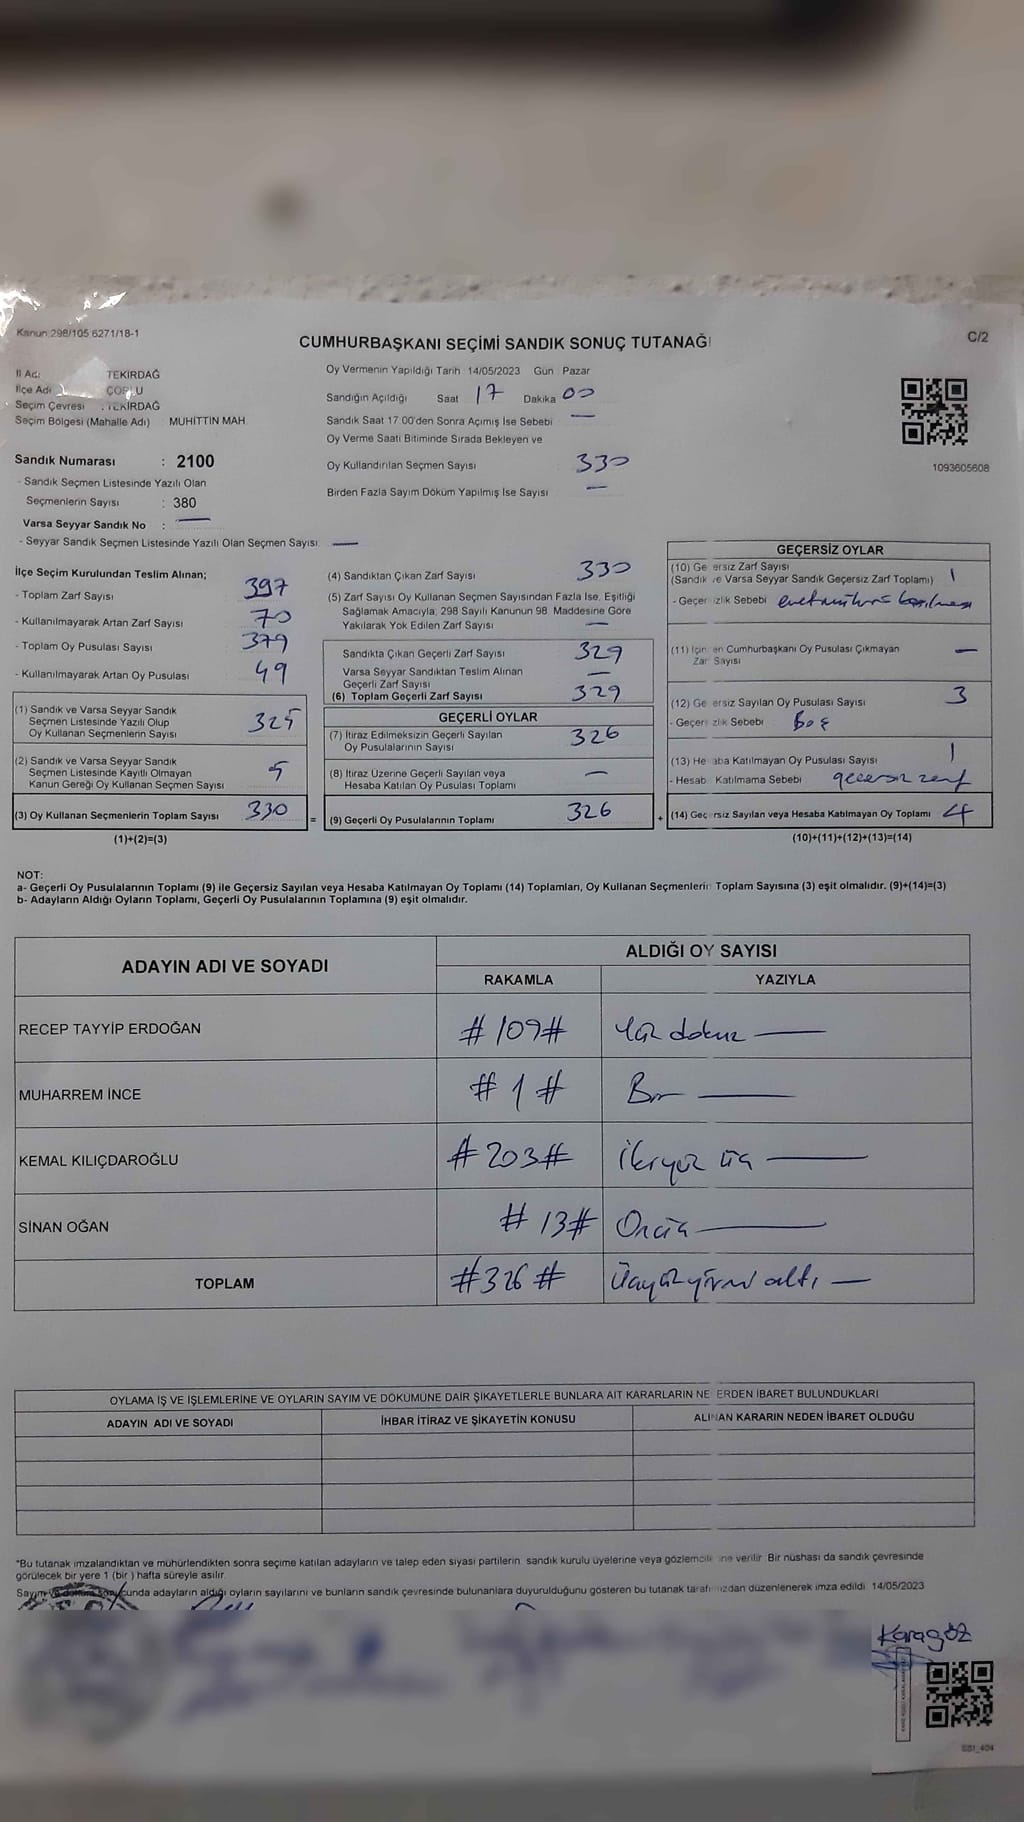 Kanun:298/105 6271/18-1
CUMHURBAŞKANI SEÇİMİ SANDIK SONUÇ TUTANAĞI
C/2
İl Adı TEKİRDAĞ
İlçe Adı ÇORLU
Seçim Çevresi : TEKİRDAĞ
Seçim Bölgesi (Mahalle Adı) MUHİTTİN MAH
Oy Vermenin Yapıldığı Tarih 14/05/2023 Gün Pazar
Sandığın Açıldığı Saat 17 Dakika 00
Sandık Saat 17.00'den Sonra Açımış İse Sebebi —
Oy Verme Saati Bitiminde Sırada Bekleyen ve
Oy Kullandırılan Seçmen Sayısı 330
Birden Fazla Sayım Döküm Yapılmış İse Sayısı —
1093605608
Sandık Numarası : 2100
- Sandık Seçmen Listesinde Yazılı Olan
Seçmenlerin Sayısı : 380
Varsa Seyyar Sandık No : —
- Seyyar Sandık Seçmen Listesinde Yazılı Olan Seçmen Sayısı —
İlçe Seçim Kurulundan Teslim Alınan;
- Toplam Zarf Sayısı 397
- Kullanılmayarak Artan Zarf Sayısı 70
- Toplam Oy Pusulası Sayısı 379
- Kullanılmayarak Artan Oy Pusulası 49
(1) Sandık ve Varsa Seyyar Sandık
Seçmen Listesinde Yazılı Olup
Oy Kullanan Seçmenlerin Sayısı 325
(2) Sandık ve Varsa Seyyar Sandık
Seçmen Listesinde Kayıtlı Olmayan
Kanun Gereği Oy Kullanan Seçmen Sayısı 5
(3) Oy Kullanan Seçmenlerin Toplam Sayısı 330
(1)+(2)=(3)
(4) Sandıktan Çıkan Zarf Sayısı 330
(5) Zarf Sayısı Oy Kullanan Seçmen Sayısından Fazla İse, Eşitliği
Sağlamak Amacıyla, 298 Sayılı Kanunun 98. Maddesine Göre
Yakılarak Yok Edilen Zarf Sayısı —
Sandıkta Çıkan Geçerli Zarf Sayısı 329
Varsa Seyyar Sandıktan Teslim Alınan
Geçerli Zarf Sayısı —
(6) Toplam Geçerli Zarf Sayısı 329
GEÇERLİ OYLAR
(7) İtiraz Edilmeksizin Geçerli Sayılan
Oy Pusulasının Sayısı 326
(8) İtiraz Üzerine Geçerli Sayılan veya
Hesaba Katılan Oy Pusulası Toplamı —
= (9) Geçerli Oy Pusulalarının Toplamı 326
GEÇERSİZ OYLAR
(10) Ge ersiz Zarf Sayısı
(Sandık ve Varsa Seyyar Sandık Geçersiz Zarf Toplamı) 1
- Geçer izlik Sebebi
(11) İçin en Cumhurbaşkanı Oy Pusulası Çıkmayan
Zar Sayısı —
(12) Ge ersiz Sayılan Oy Pusulası Sayısı 3
- Geçer zlik Sebebi Boş
(13) He aba Katılmayan Oy Pusulası Sayısı 1
- Hesab Katılmama Sebebi geçersiz zarf
+ (14) Geçersiz Sayılan veya Hesaba Katılmayan Oy Toplamı 4
(10)+(11)+(12)+(13)=(14)
NOT:
a- Geçerli Oy Pusulalarının Toplamı (9) ile Geçersiz Sayılan veya Hesaba Katılmayan Oy Toplamı (14) Toplamları, Oy Kullanan Seçmenlerin Toplam Sayısına (3) eşit olmalıdır. (9)+(14)=(3)
b- Adayların Aldığı Oyların Toplamı, Geçerli Oy Pusulalarının Toplamına (9) eşit olmalıdır.
ADAYIN ADI VE SOYADI
ALDIĞI OY SAYISI
RAKAMLA YAZIYLA
RECEP TAYYİP ERDOĞAN #109# Yüz dokuz —
MUHARREM İNCE #1# Bir —
KEMAL KILIÇDAROĞLU #203# İkiyüz üç —
SİNAN OĞAN #13# Onüç —
TOPLAM #326# Üçyüzyirmi altı —
OYLAMA İŞ VE İŞLEMLERİNE VE OYLARIN SAYIM VE DÖKÜMÜNE DAİR ŞİKAYETLERLE BUNLARA AİT KARARLARIN NE ERDEN İBARET BULUNDUKLARI
ADAYIN ADI VE SOYADI İHBAR İTİRAZ VE ŞİKAYETİN KONUSU ALINAN KARARIN NEDEN İBARET OLDUĞU
*Bu tutanak imzalandıktan ve mühürlendikten sonra seçime katılan adayların ve talep eden siyasi partilerin sandık kurulu üyelerine veya gözlemcile ine verilir. Bir nüshası da sandık çevresinde
görülecek bir yere 1 (bir ) hafta süreyle asılır.
Sayım ve döküm sonucunda adayların aldığı oyların sayılarını ve bunların sandık çevresinde bulunanlara duyurulduğunu gösteren bu tutanak tarafımızdan düzenlenerek imza edildi. 14/05/2023
Karagöz